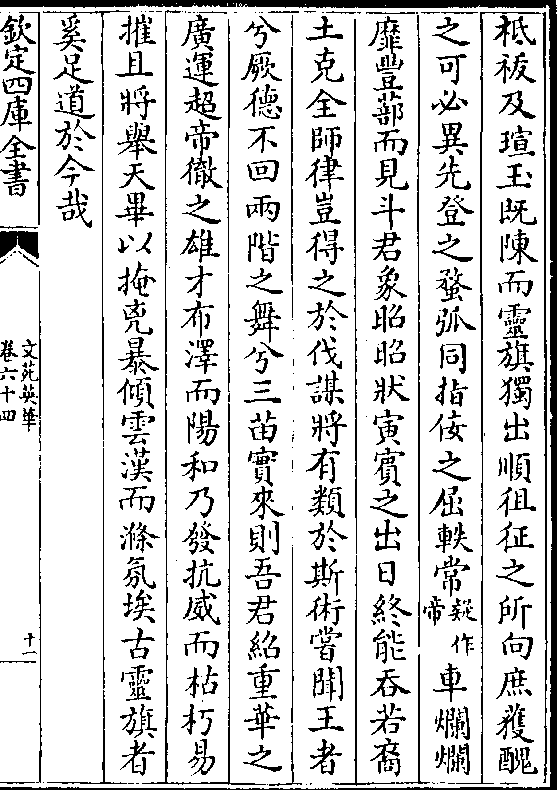 柢祓及瑄玉既陳而靈旗獨出順徂征之所向庶獲醜
之可必異先登之蝥弧同指佞之屈軼常疑作帝車爛爛
靡豐蔀而見斗君象昭昭狀寅賓之出日終能吞若裔
土克全師律豈得之於伐謀將有類於斯術嘗聞王者
兮厥德不回兩階之舞兮三苗實來則吾君紹重華之
廣運超帝徹之雄才布澤而陽和乃發抗威而枯朽易
摧且將舉天畢以掩兇暴傾雲漢而滌氛埃古靈旗者
奚足道於今哉
欽定四庫全書
文苑英華
卷六十四
十一